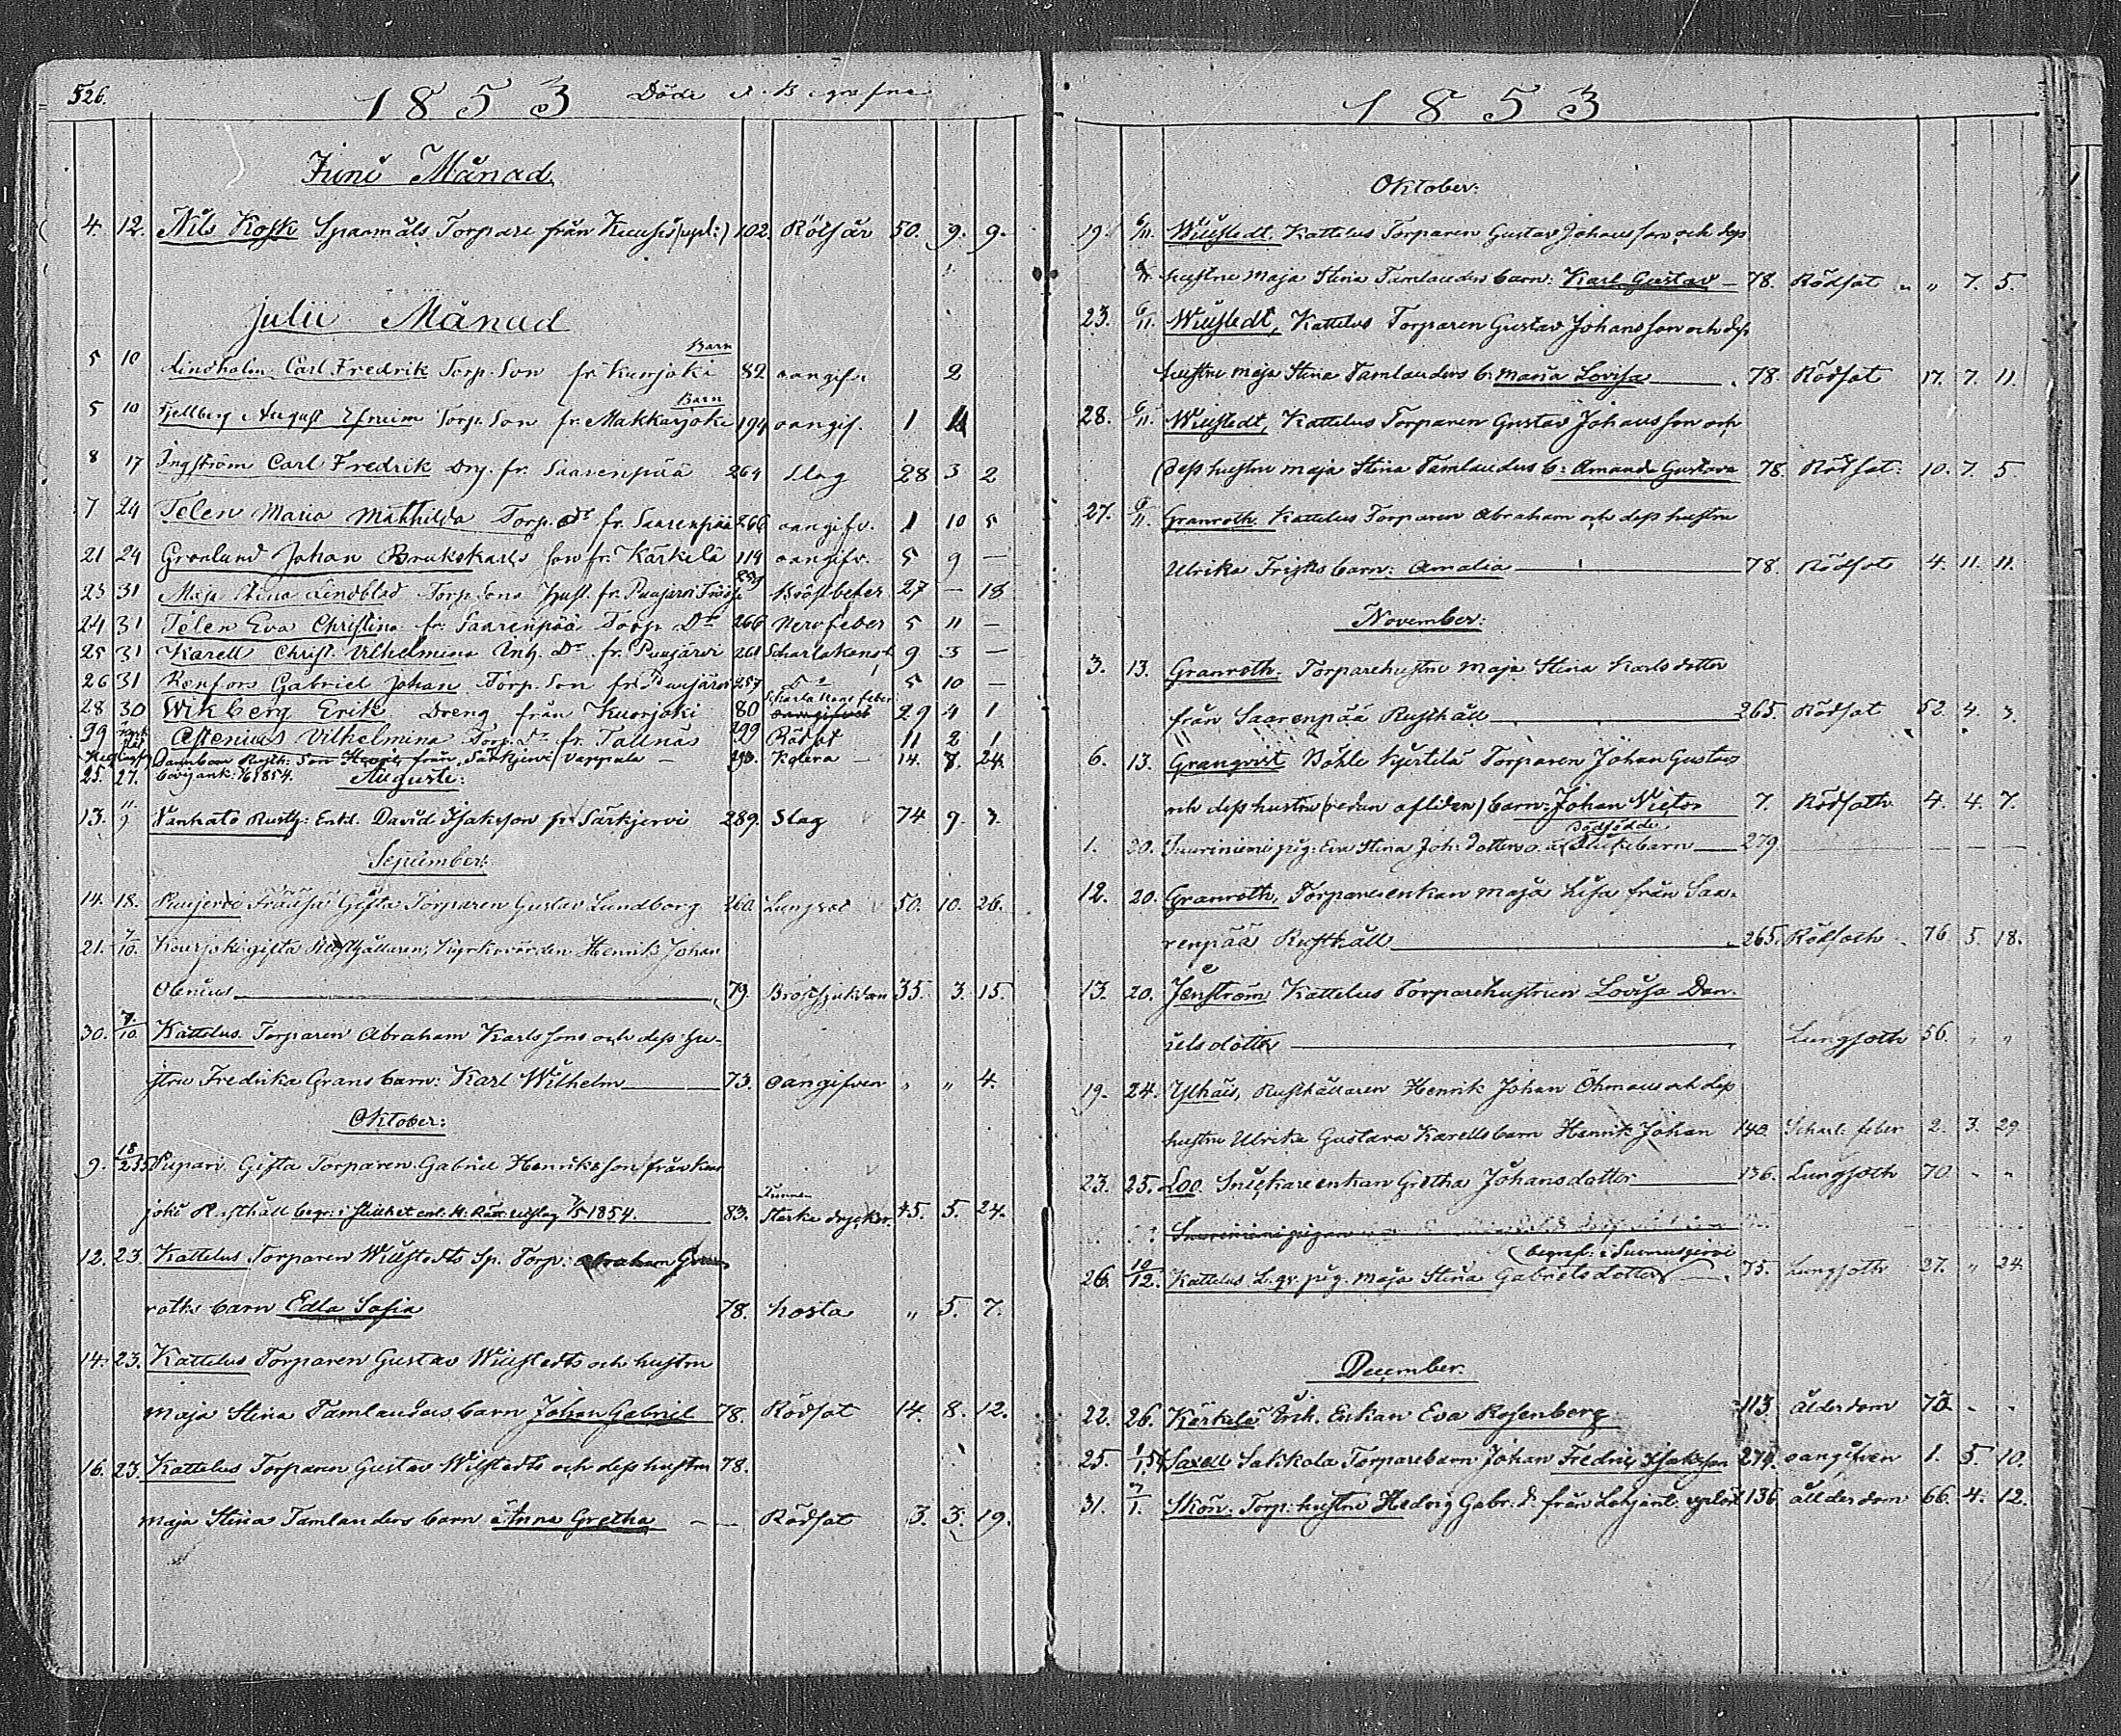 526.
1853 Döde & Begrafne
Juni Månad
4. 12. Nils Kosk Spanmåls Torpare från 102. Rötsår 50. 9. 9.
Julii Månad
Barn
5 10 Lindholm Carl Fredrik Torp. Son fr. Kuorjoki 82 oangifv. 2
Barn
5 10 Fjellberg August Efraim Torp. Son fr. Makkarjoki 194 oangif. 1
8 17 Ingström Carl Fredrik Drg. fr. Saarenpää 264 Slag 28 3 2
7 24 Telen Maria Mathilda Torp. Dr fr. Saarenpää 266 oangifv. 1 10 5
21 24 Grönlund Johan Brukskarls son fr. Kärkelä 114 oangifv. 5 9 —
23 31 Maja Stina Lindblad Torp. Sons Hust. fr. Puujärvi 259 Bröstfeber 27 — 18
24 31 Telen Eva Christina fr. Saarenpää Torp Dr 266 Nervfeber 5 11 —
25 31 Karell Christ. Vilhelmina Inh. Dr fr. Puujärvi 261 Scharlakansf 9 3 —
26 31 Renfors Gabriel Johan Torp. Son fr. Puujärvi 257 Do 5 10 —
Scharlakans feber
28 30 Wikberg Erik Dreng från Kuorjoki 80 oangifvet 29 4 1
29 Astenius Vilhelmina Torp. Dr fr. Tallnäs 299 Rödsot 11 2 1
Dannbom Rusth. Son Henrik från Särkjervi Vappula — 290. Kolera — 14. 8. 24.
25. 27. 1854. Augusti:
13. 11/9 Vanhato Rusth: Enkl. David Isaksson fr Särkjervi 289. Slag 74 9. 3.
September:
14. 18. Puujervi Fräusä Gifta Torparen Gustav Lundborg 260. Lungsot 50. 10. 26.
21. 7/10. Kourjoki gifta Rusthållaren, Kyrkovärden Henrik Johan
Olenius 79. Bröstsjukdom 35. 3. 15.
30. 7/10. Kattelus Torparen Abraham Karlssons och dess hu-
stru Fredrika Grans barn: Karl Wilhelm 73. Oangifven „ „ 4.
Oktober:
9. Pipari Gifta Torparen Gabriel Henriksson från Kuor
joki Rusthåll begr: i stillhet enl. H. Rätt. utslag 1854. 83. Starka drycker. 45. 5. 24.
12. 23. Kattelus Torparen Wiistedts Sp. Torp: Abraham Gran
roths barn Edla Sofia 78. hosta „ 5. 7.
14. 23. Kattelus Torparen Gustav Wiistedts och hustru
Maja Stina Tamlanders barn Johan Gabriel 78. Rödsot 14. 8. 12.
16. 23. Kattelus Torparen Gustav Wiistedts och dess hustru 78.
Maja Stina Tamlanders barn Anna Gretha — — Rödsot 3. 3. 19.
1853
Oktober:
19. 6/11. Wiistedt, Kattelus Torparen Gustav Johansson och dess
6/11. hustru Maja Stina Tamlanders barn: Karl Gustav — 78. Rödsot „ „ 7. 5.
23. 6/11. Wiistedt, Kattelus Torparen Gustav Johansson och dess
hustru Maja Stina Tamlanders b: Maria Lovisa 78. Rödsot 17. 7. 11.
28. 6/11. Wiistedt, Kattelus Torparen Gustav Johansson och
dess hustru Maja Stina Tamlanders b: Amanda Gustava 78. Rödsot: 10. 7. 5.
27. 6/11. Granroth. Kattelus Torparen Abraham och dess hustru
Ulrika Frisks barn: Amalia 78. Rödsot 4. 11. 11.
November:
3. 13. Granroth. Torparehustru Maja Stina Karlsdotter
från Saarenpää Rusthåll 265. Rödsot 52. 4. 3.
6. 13. Granqvist Böhle Kjertelä Torparen Johan Gustavs
och dess hustru (redan afliden) barn: Johan Victor 7. Rödsoth 4. 4. 7.
Dödfödde
1. 20. Suuriniemi pig: Eva Stina Joh: Dotters o. ä. flickebarn 279.
12. 20. Granroth, Torpareenkan Maja Lisa från Saa-
renpää Rusthåll 265. Rödsoth 76 5. 18.
13. 20. Jenström Kattelus Torparehustrun Lovisa Dan-
ielsdotter Lungsoth 56. „ „
19. 24. Ylhäis, Rusthållaren Henrik Johan Öhmans och dess
hustru Ulrika Gustava Karells barn Henrik Johan 140. Scharl: feber 2. 3. 29
23. 25. Loo. Snickareenkan Gretha Johansdotter 136. Lungsoth 70. „ „
Suuriniemi pigan
begraf: i Suomusjervi
26. 10/12. Kattelus L. gv. pig. Maja Stina Gabrielsdotter 75. Lungsoth 27. „ 24.
December.
22. 26. Kärkelä Inh. Enkan Eva Rosenberg 113. Ålderdom 73. „ „
25. Saxell Sakkola Torparebarn Johan Fredrik Isaksson 274. oangifven 1. 5. 10.
31. 7/1. Skön. Torp: hustru Hedvig Gabr: d. från Lohjant. 136 ålderdom 66. 4. 12.